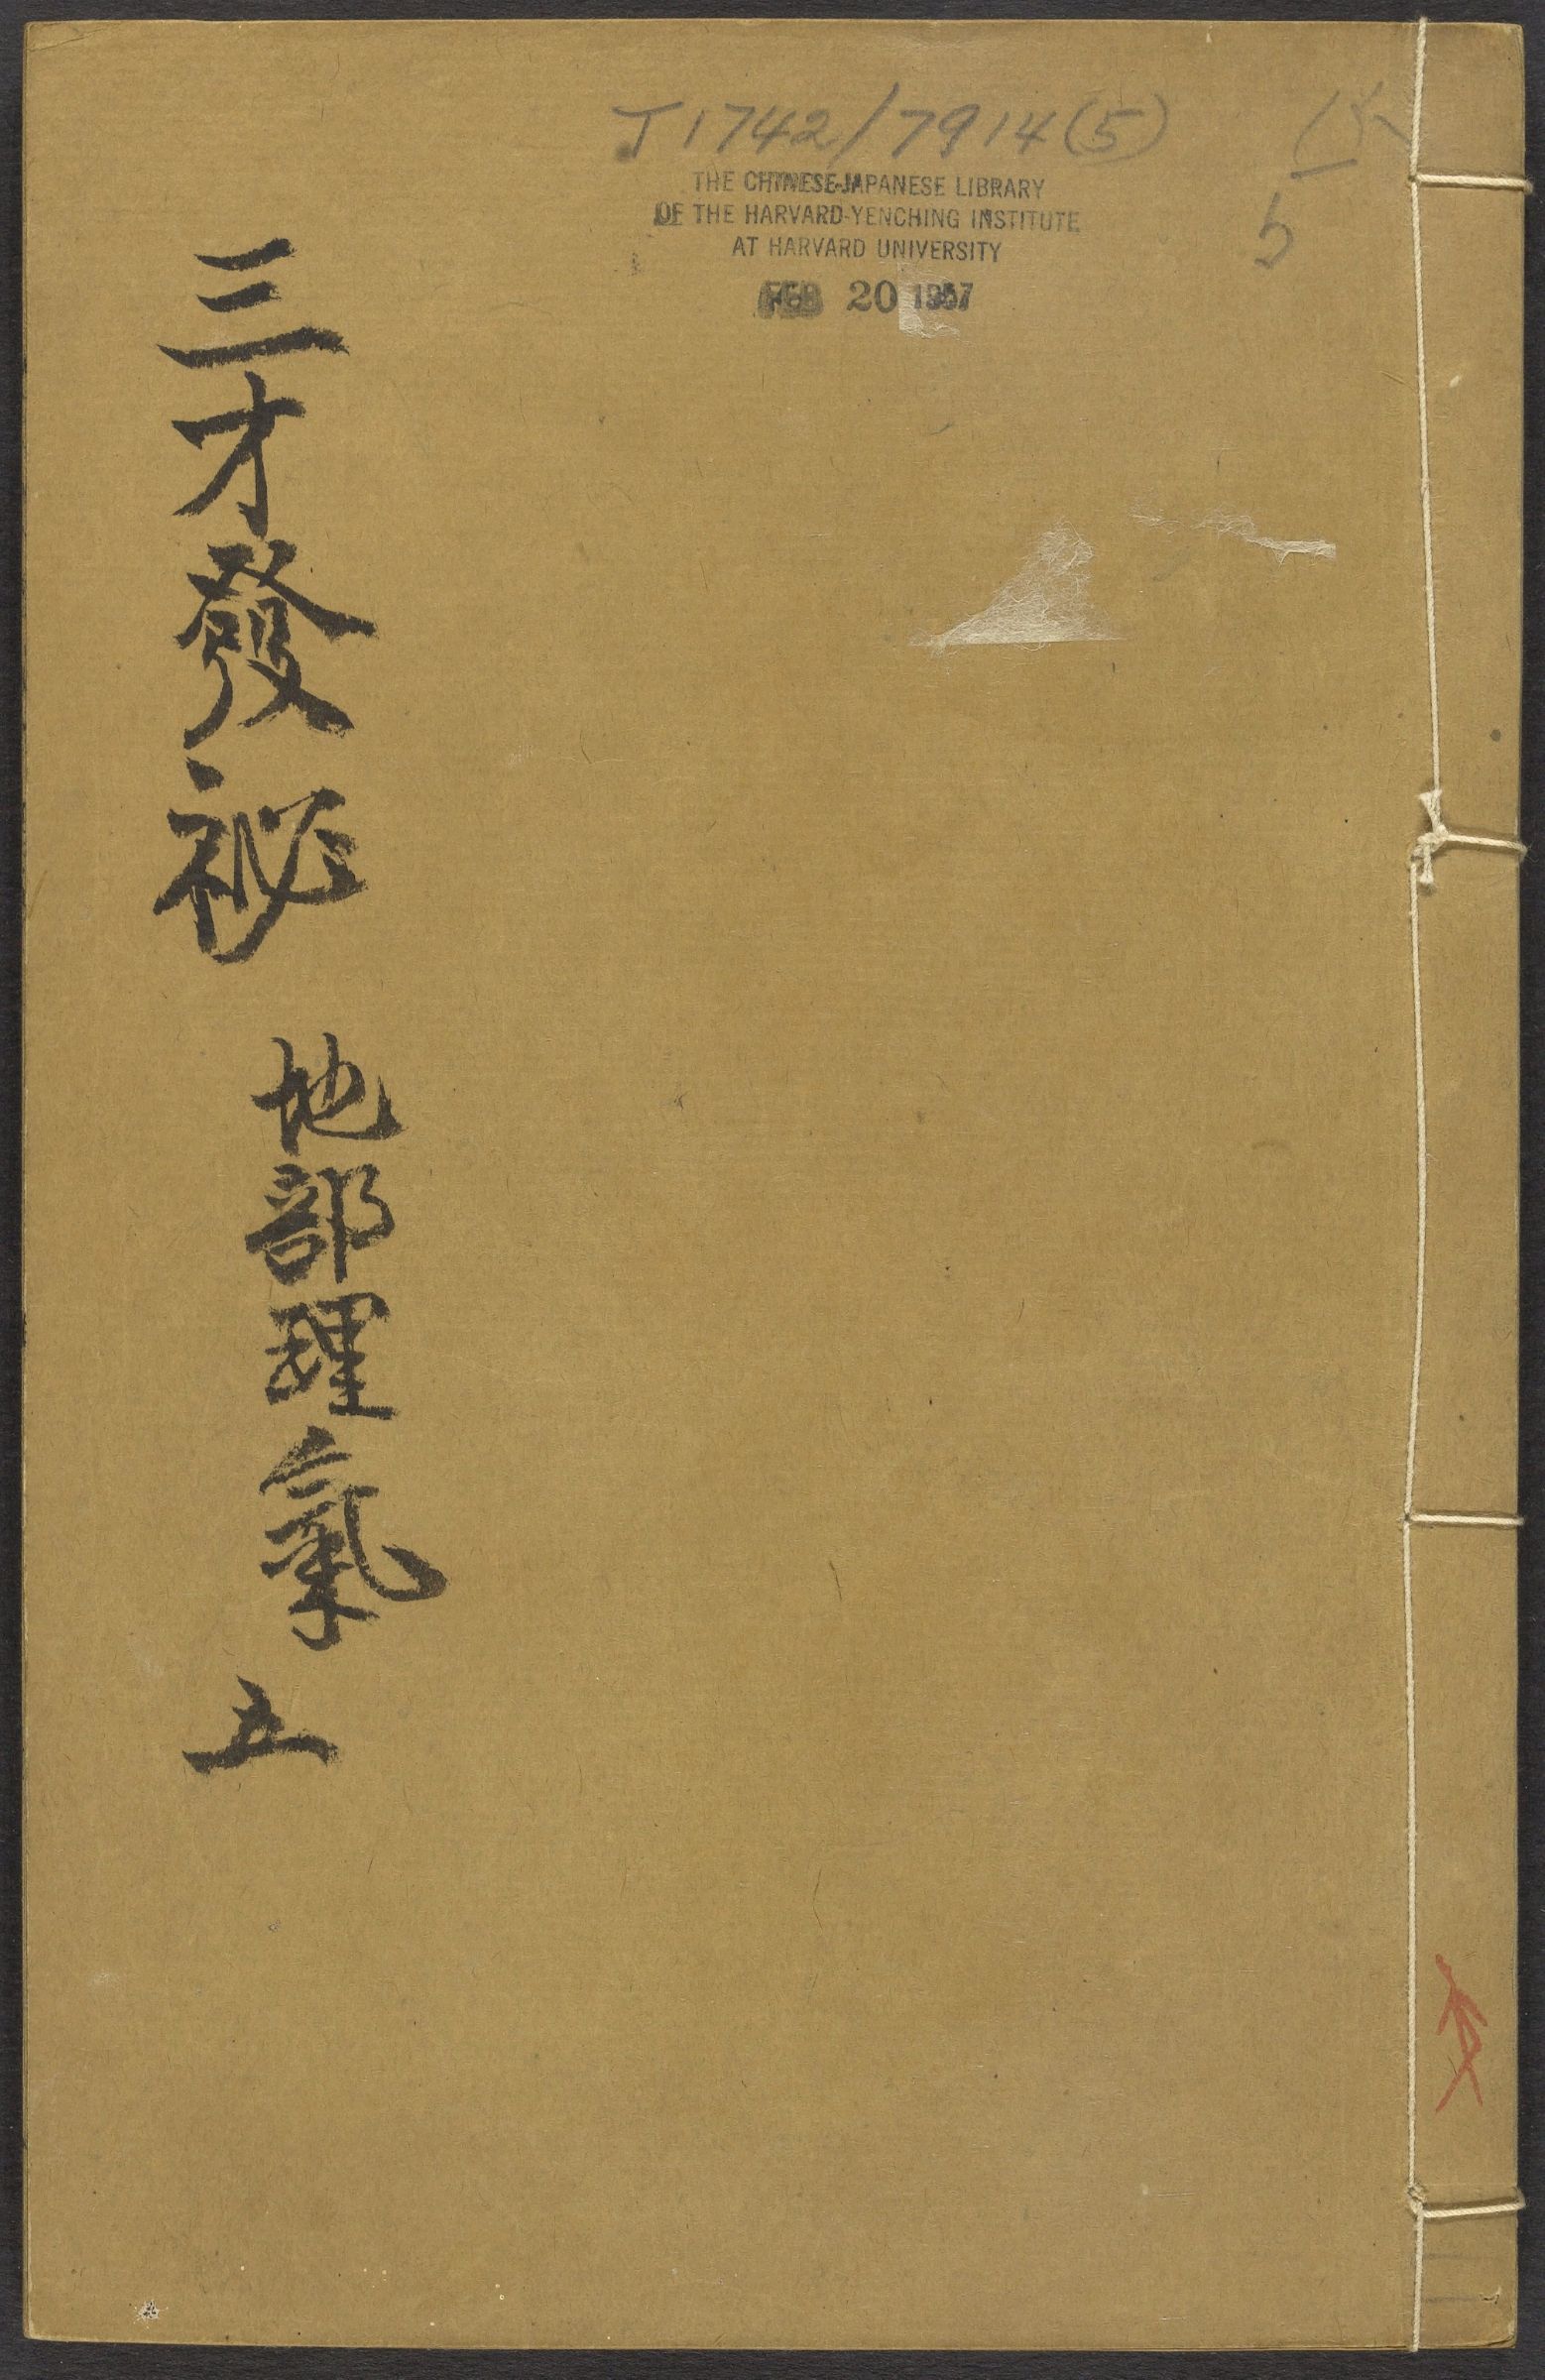 T1742/7914(5)
THE CHINESE-JAPANESE LIBRARY
OF THE HARVARD-YENCHING INSTITUTE
AT HARVARD UNIVERSITY
FEB 20 1957
5
三才發祕
地部理氣
五